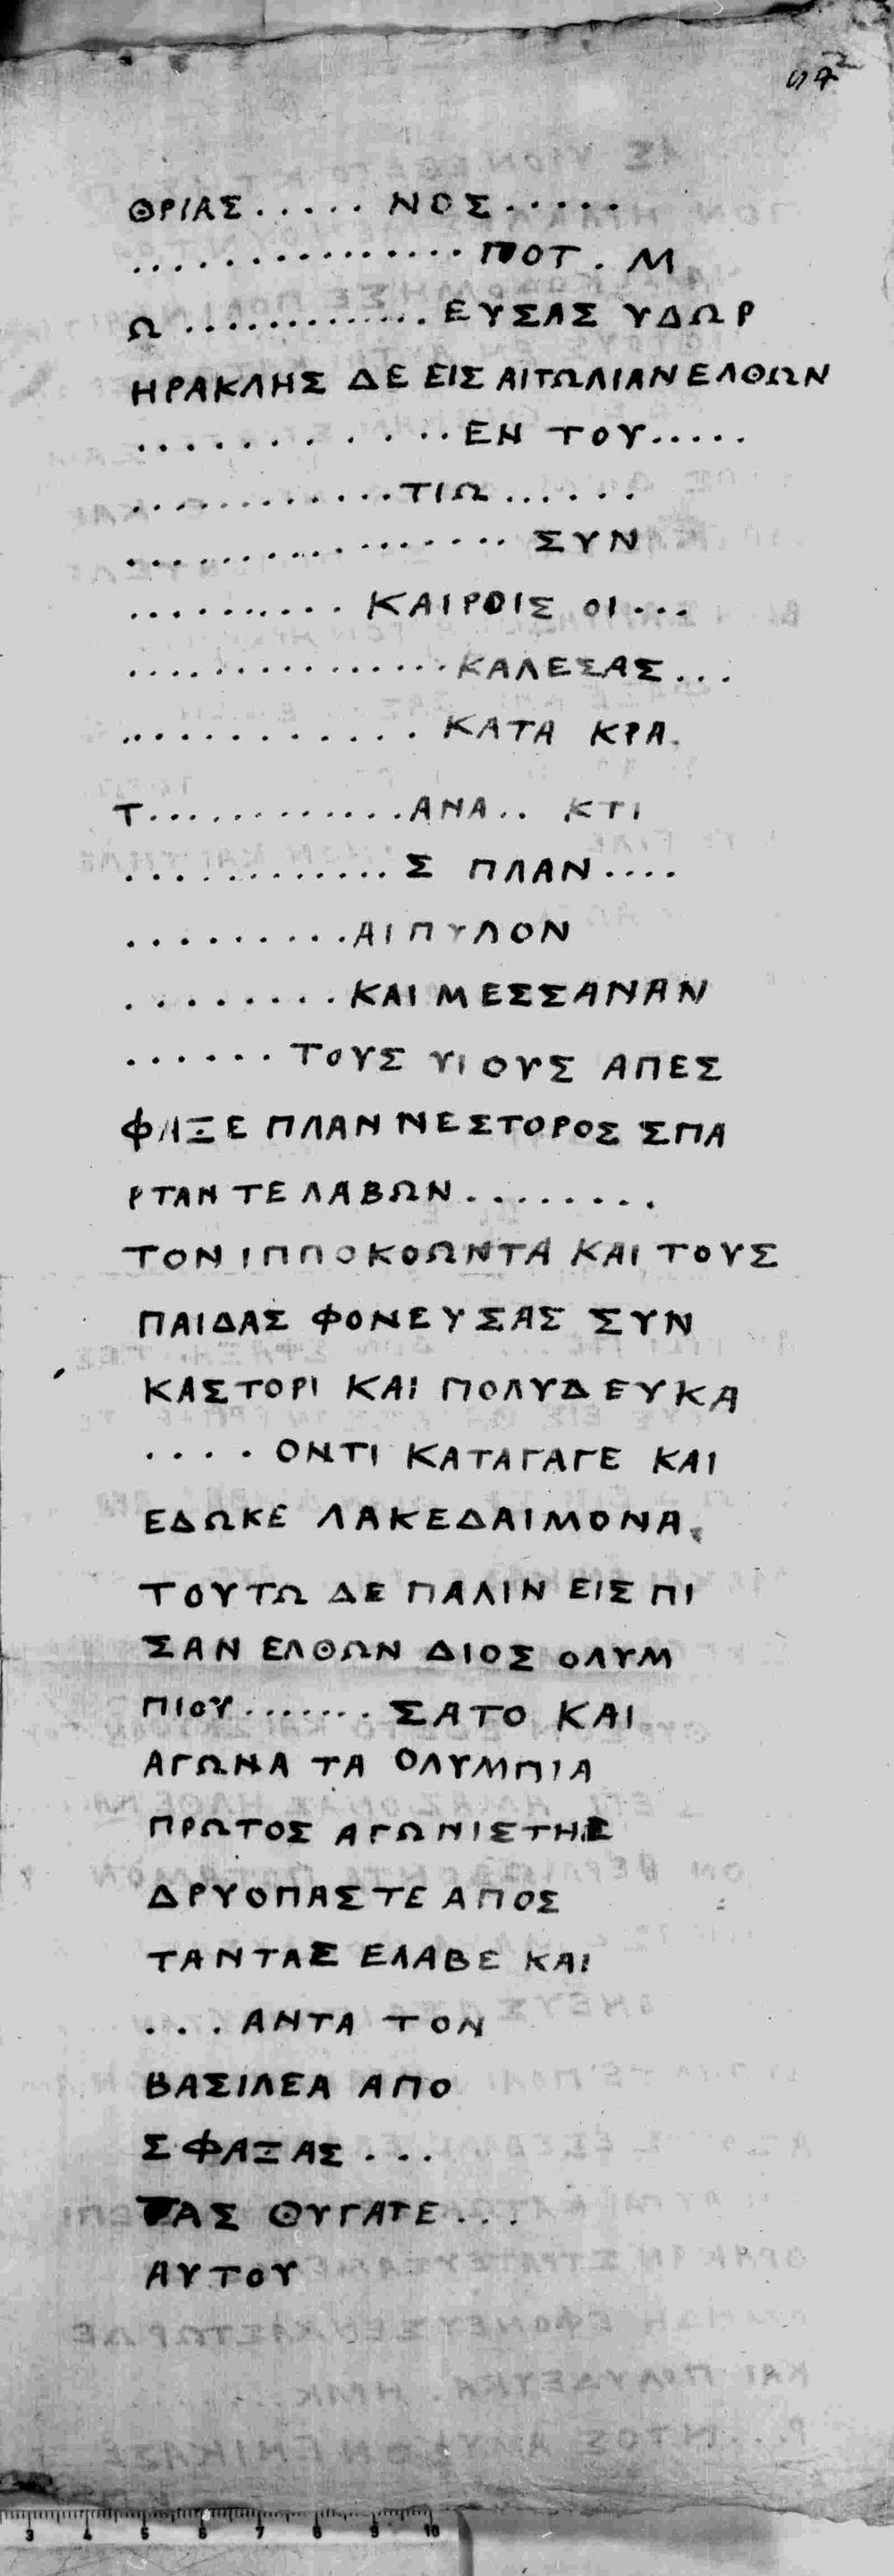 ΘΡΙΑΣ..... ΝΟΣ.....
................ΠΟΤ. Μ
Ω..............ΕΥΣΑΣ ΥΔΩΡ
ΗΡΑΚΛΗΣ ΔΕ ΕΙΣ ΑΙΤΩΛΙΑΝ ΕΛΘΩΝ
............ΕΝ ΤΟΥ.....
............ΤΙΩ......
.................ΣΥΝ
..........ΚΑΙΡΟΙΣ ΟΙ...
................ΚΑΛΕΣΑΣ...
............ΚΑΤΑ ΚΡΑ.
Τ.............ΑΝΑ.. ΚΤΙ
............Σ ΠΛΑΝ....
.........ΑΙΠΥΛΟΝ
........ΚΑΙ ΜΕΣΣΑΝΑΝ
......ΤΟΥΣ ΥΙΟΥΣ ΑΠΕΣ
ΦΑΞΕ ΠΛΑΝ ΝΕΣΤΟΡΟΣ ΣΠΑ
ΡΤΑΝ ΤΕ ΛΑΒΩΝ........
ΤΟΝ ΙΠΠΟΚΟΩΝΤΑ ΚΑΙ ΤΟΥΣ
ΠΑΙΔΑΣ ΦΟΝΕΥΣΑΣ ΣΥΝ
ΚΑΣΤΟΡΙ ΚΑΙ ΠΟΛΥΔΕΥΚΑ
....ΟΝΤΙ ΚΑΤΑΓΑΓΕ ΚΑΙ
ΕΔΩΚΕ ΛΑΚΕΔΑΙΜΟΝΑ.
ΤΟΥΤΩ ΔΕ ΠΑΛΙΝ ΕΙΣ ΠΙ
ΣΑΝ ΕΛΘΩΝ ΔΙΟΣ ΟΛΥΜ
ΠΙΟΥ.......ΣΑΤΟ ΚΑΙ
ΑΓΩΝΑ ΤΑ ΟΛΥΜΠΙΑ
ΠΡΩΤΟΣ ΑΓΩΝΙΣΤΗΣ
ΔΡΥΟΠΑΣ ΤΕ ΑΠΟΣ
ΤΑΝΤΑΣ ΕΛΑΒΕ ΚΑΙ
...ΑΝΤΑ ΤΟΝ
ΒΑΣΙΛΕΑ ΑΠΟ
ΣΦΑΞΑΣ...
ΤΑΣ ΘΥΓΑΤΕ...
ΑΥΤΟΥ
3 4 5 6 7 8 9 10